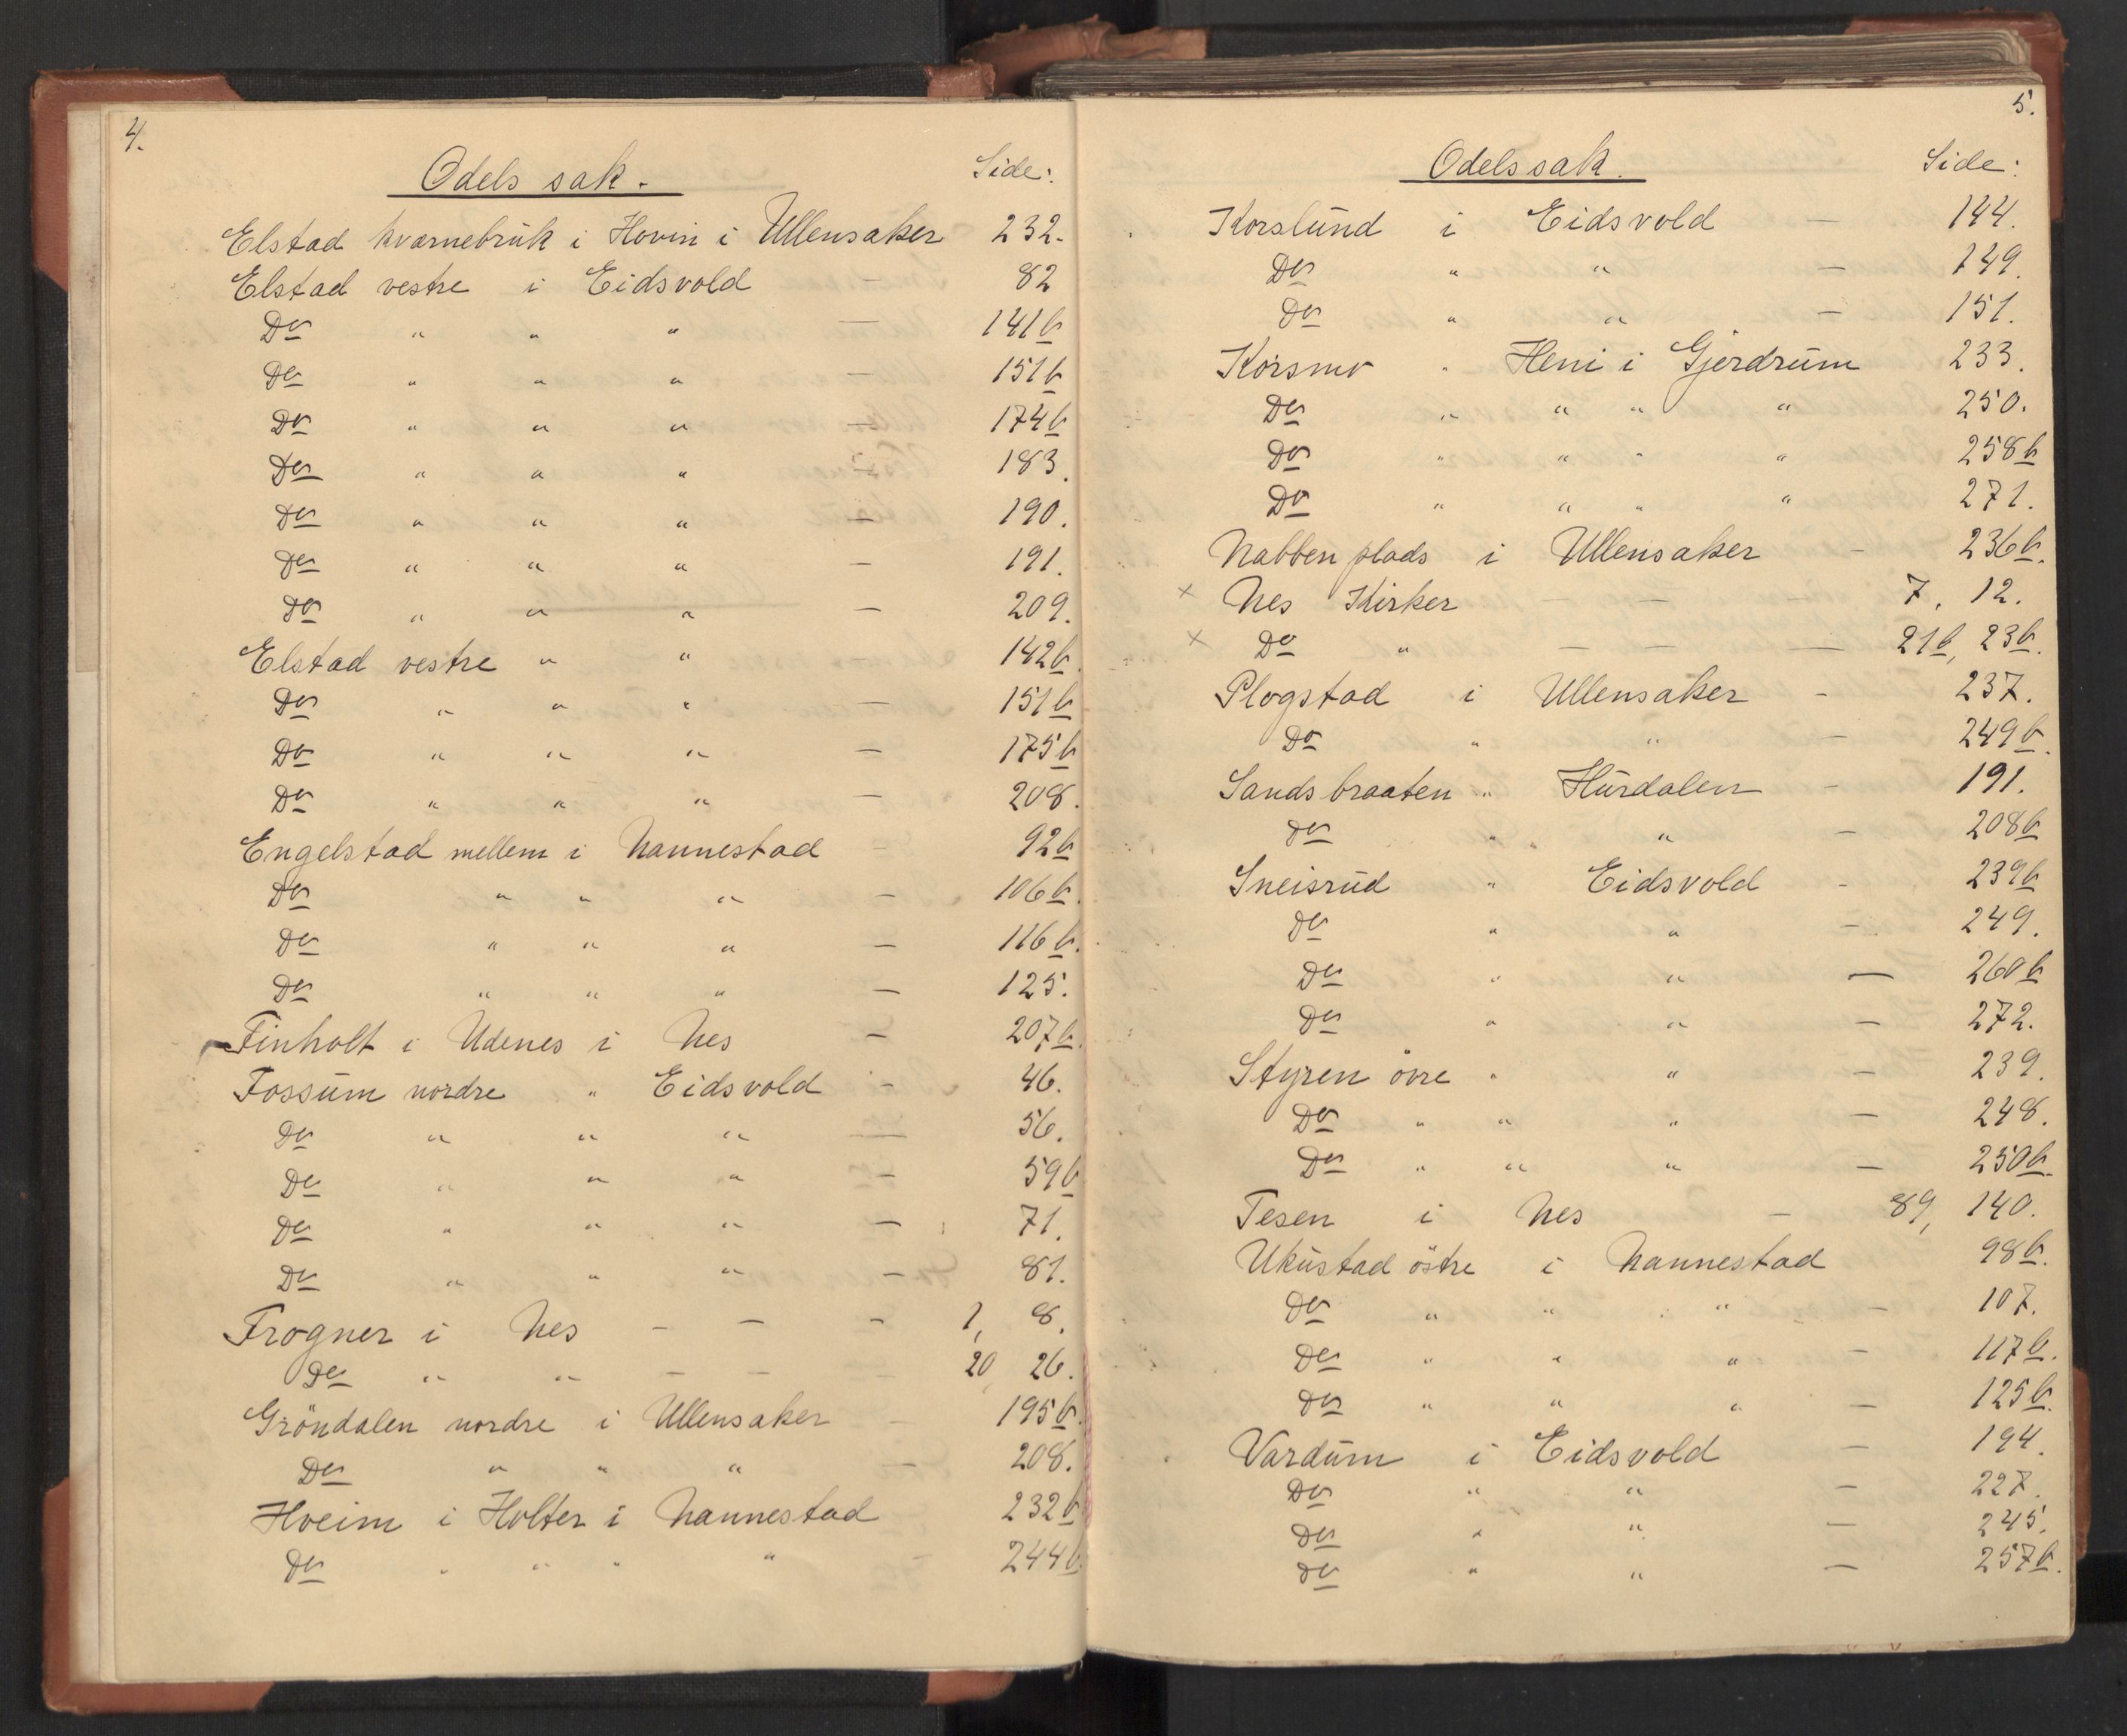 4.
Odels sak. Side:
Elstad kværnebruk i Hovin i Ullensaker 232.
Elstad vestre i Eidsvold — 82
Do " " " — 141b
Do " " " — 151b
Do " " " — 174b
Do " " " — 183.
Do " " " — 190.
Do " " " — 191.
Do " " " — 209.
Elstad vestre " " 142b.
Do " " " — 151b
Do " " " — 175b
Do " " " — 208.
Engelstad mellem i Nannestad - 92b
Do " " " — 106b.
Do " " " — 116b.
Do " " " — 125.
Finholt i Udenes i Nes — 207b.
Fossum nordre " Eidsvold - 46.
Do " " " — 56.
Do " " " — 59b
Do " " " — 71.
Do " " " — 81.
Frogner i Nes — — — 1, 8.
Do " " — — — 20, 26.
Gröndalen nordre i Ullensaker - 195b.
Do " " " — 208.
Hveim i Holter i Nannestad 232b
Do " " " " - 244b.
5.
Odelssak. Side:
Korslund i Eidsvold — 144.
Do " " — 149.
Do " " — 151.
Korsmo " Heni i Gjerdrum 233.
Do " " " " 250.
Do " " " " 258b
Do " " " " 271.
Nabben plads i Ullensaker - 236b.
× Nes Kirker — — 7, 12.
× Do " — — — 21b, 23b.
Plogstad i Ullensaker - 237.
Do " " — 249b.
Sandsbraaten " Hurdalen - 191.
Do " " — 208b
Sneisrud " Eidsvold - 239b
Do " " — 249.
Do " " — 260b
Do " " — 272.
Styren övre " " — 239.
Do " " " — 248.
Do " " " — 250b.
Tesen i Nes — 89, 140.
Ukustad östre i Nannestad 98b.
Do " " " — 107.
Do " " " — 117b.
Do " " " — 125b.
Vardum i Eidsvold — 194.
Do " " — 227.
Do " " — 245.
Do " " — 257b.